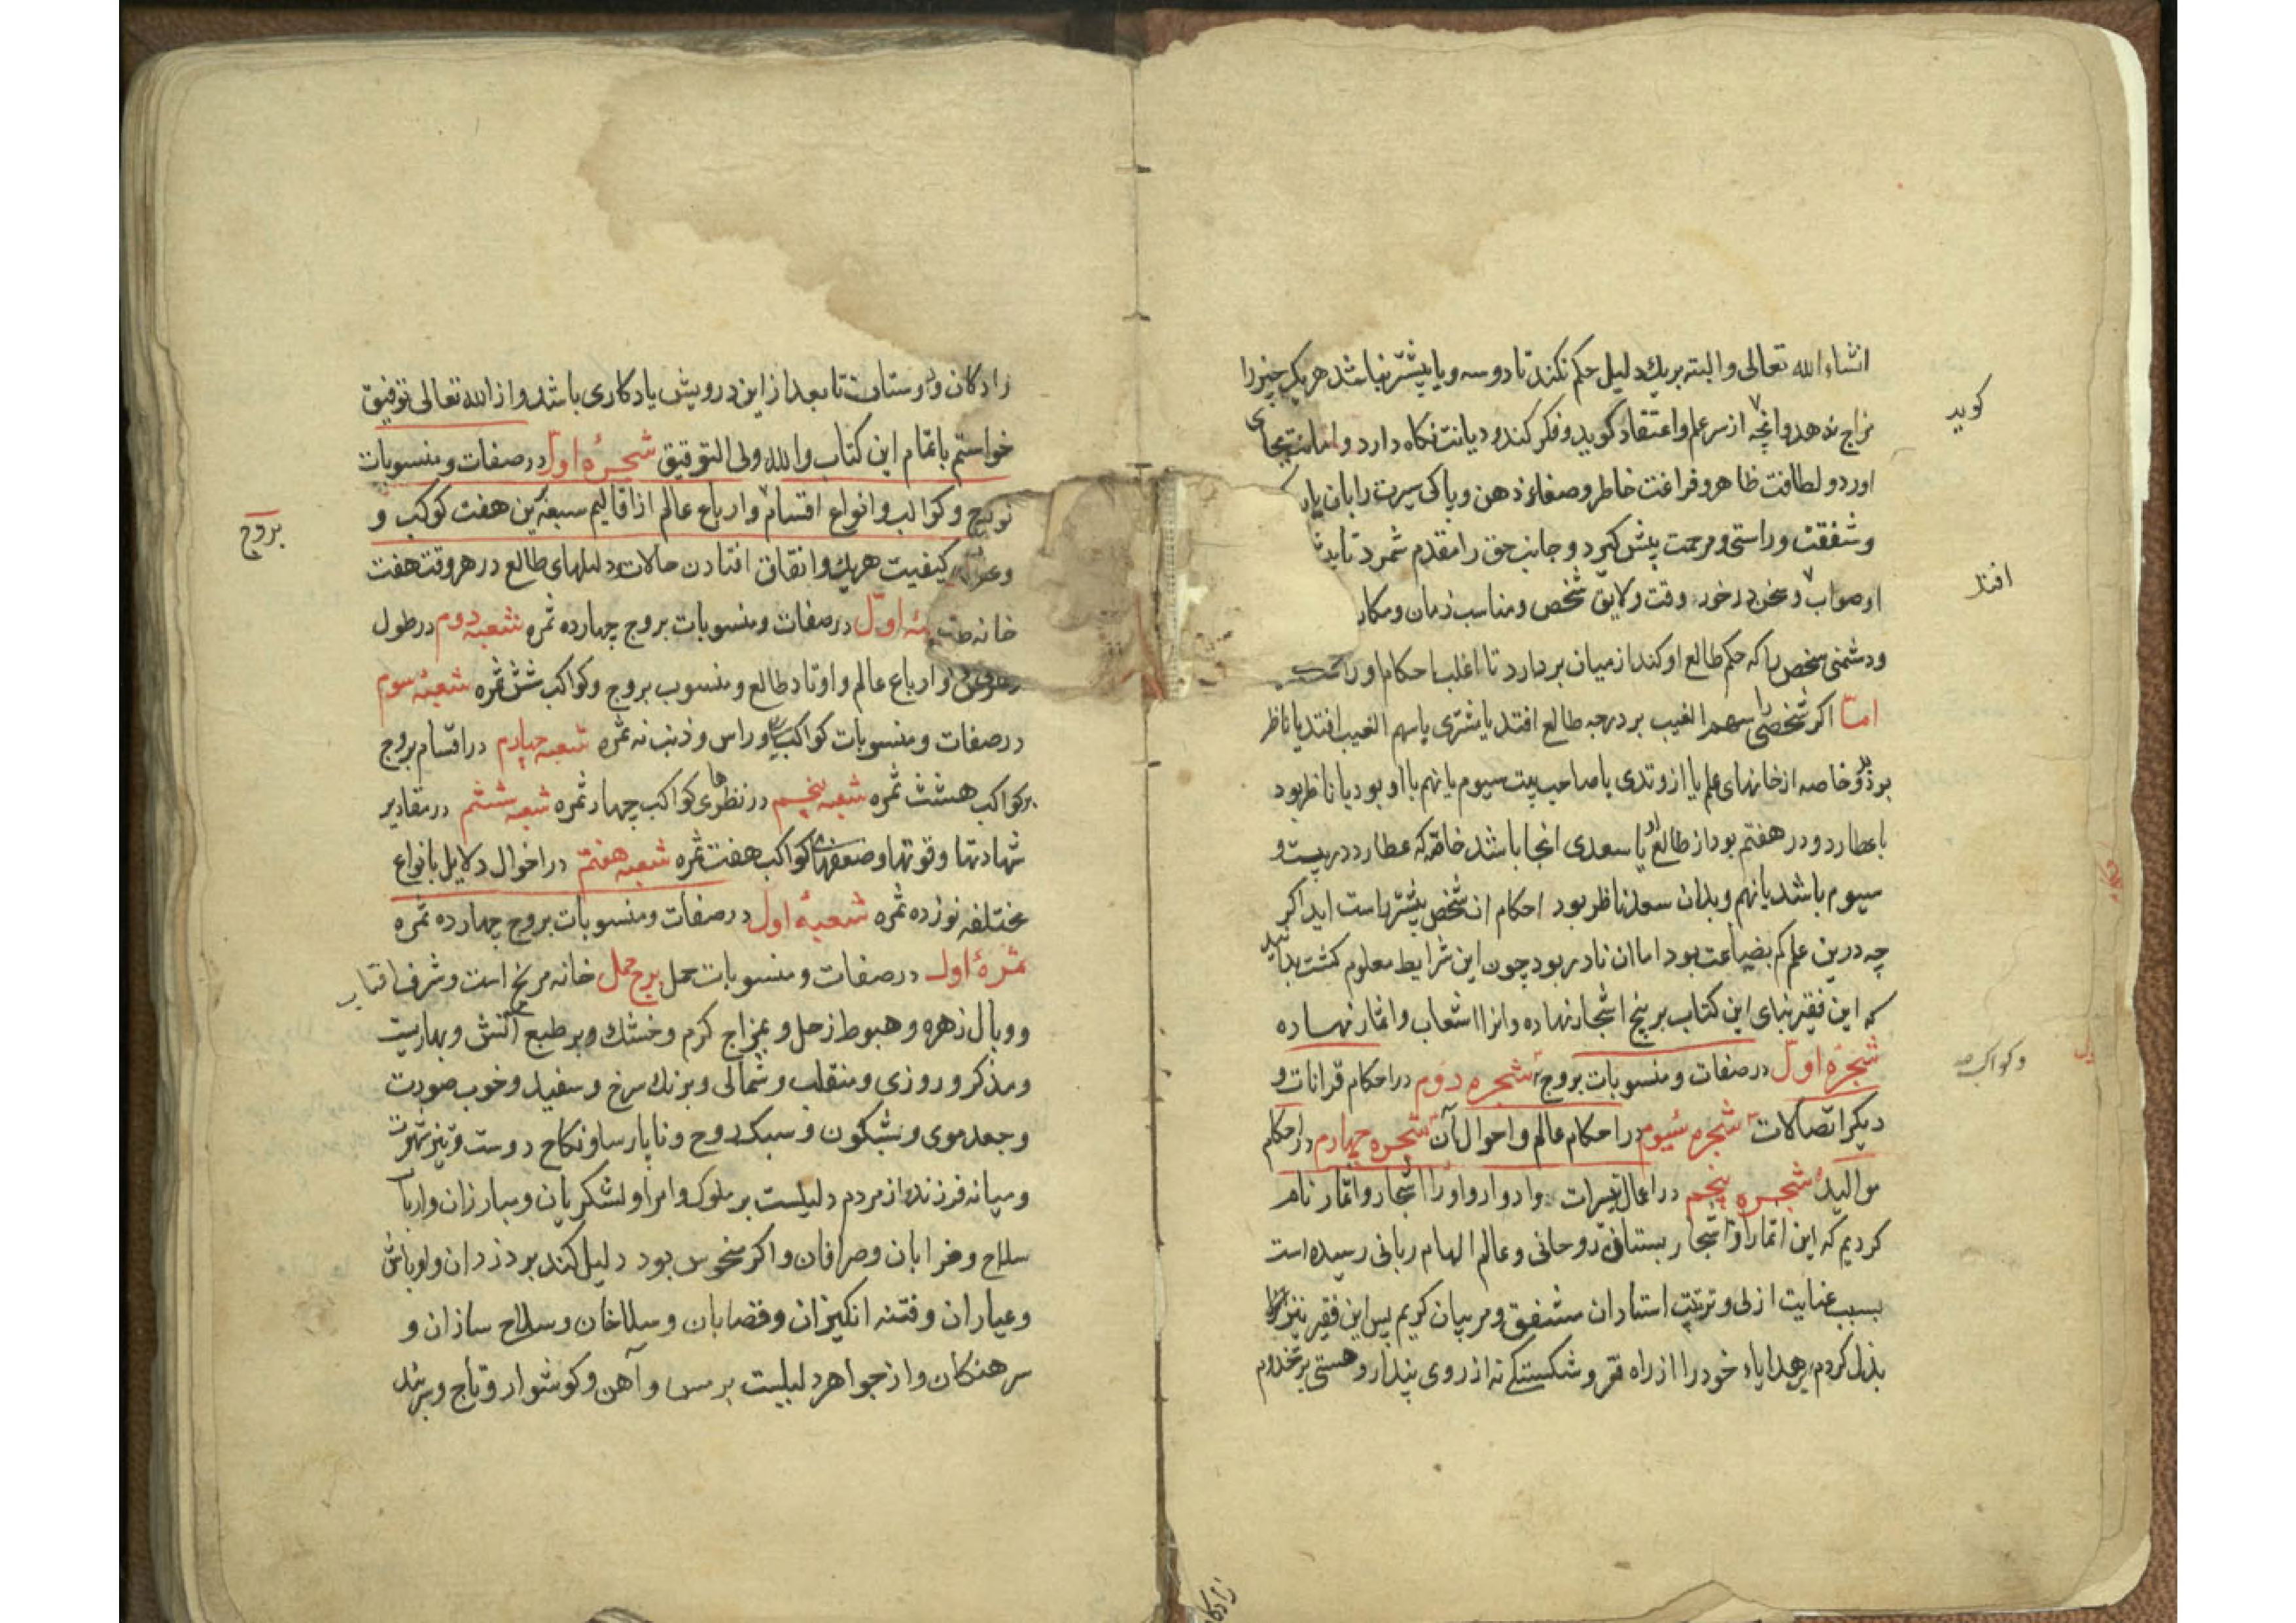 انشاء الله تعالی و البته بریك دلیل حکم نکند تا دو سه و یا بیشتر نباشد هر یک چیز را
مزاج ندهد و انچه از سر علم و اعتقاد کوید و فکر کند و دیانت نکاه دارد و امانت بجای
کوید
اورد و لطافت ظاهر و فراغت خاطر و صفاء ذهن و پاکی سیرت را بان یار
و شفقت و راستی و مرحمت پیش کیرد و جانب حق را مقدم شمرد تا
او صواب و سخن در خور وقت و لایق شخص و مناسب زمان و مکان
افتد
و دشمنی شخص را که حکم طالع او کند از میان بردارد تا اغلب احکام او راست
امّا اکر شخصی را سهم الغیب بر درجه طالع افتد یا مشتری یا سهم الغیب افتد یا ناظر
برو خاصه از خانهای علم یا از وتدی یا صاحب بیت سیوم یا نهم با او بود یا ناظر بود
با عطارد و در هفتم بود از طالع و یا سعدی انجا باشد خاصّه که عطارد در بیست و
سیوم باشد یا نهم و بدان سعد ناظر بود احکام ان شخص بیشتر راست اید اکر
چه درین علم کم بضاعت بود اما ان نادر بود چون این شرایط معلوم کشت بدانید
که این فقیر بنای این کتاب بر پنج اشجار نهاده و انرا اشعاب و اثمار نهاده
شجرهٔ اوّل در صفات و منسوبات بروج شجره دوم در احکام قرانات و
و کواکب صح
دیکر اتّصالات شجره سیوم در احکام عالم و احوال آن شجره چهارم در احکام
موالید شجره پنجم در اعمال تسیرات و ادوار و او را اشجار و اثمار نام
کردیم که این اثمار و اشجار بستانی روحانی و عالم الهام ربانی رسیده است
بسبب عنایت ازلی و تربیت استادان مشفق و مربیان کریم پس این فقیر نیز
بذل کردم هدایاء خود را از راه فقر و شکستکی نه از روی پندار و هستی بر مخدوم
زادکان
زادکان و دوستان تا بعد از این درویش یادکاری باشد و از الله تعالی توفیق
خواستم باتمام این کتاب و الله ولی التوفیق شجرهٔ اول در صفات و منسوبات
بروج و کواکب و انواع اقسام و ارباع عالم از اقالیم سبعه کین هفت کوکب و
بروج
کیفیت هریك و اتفاق افتادن حالات دلیلهای طالع در هر وقت هفت
خانه اوّل در صفات و منسوبات بروج چهارده ثمره شعبهٔ دوم در طول
و عرض و ارباع عالم و اوتاد طالع و منسوب بروج و کواکب شش ثمره شعبهٔ سوم
در صفات و منسوبات کواکب و راس و ذنب نه ثمره شعبهٔ چهارم در اقسام بروج
بر کواکب هشت ثمره شعبه پنجم در نظرهای کواکب چهار ثمره شعبه ششم در مقادیر
شهادتها و قوتها و ضعفهای کواکب هفت ثمره شعبه هفتم در احوال دلایل بانواع
مختلفه نوزده ثمره شعبهٔ اول در صفات و منسوبات بروج چهارده ثمره
ثمرهٔ اول در صفات و منسوبات حمل برج حمل خانه مریخ است و شرف افتاب
و وبال زهره و هبوط زحل و بمزاج کرم و خشك و بر طبع آتش و بهاریست
و مذکر و روزی و منقلب و شمالی و برنك سرخ و سفید و خوب صورت
و جعد موی و شبکون و سبک روح و ناپارسا و نکاح دوست و تیز شهوت
و میانه فرزند و از مردم دلیلست بر ملوک و امرا و لشکریان و مبارزان و ارباب
سلاح و ضرابان و صرافان و اکر منحوس بود دلیل کند بر دزدان و اوباش
و عیاران و فتنه انکیزان و قصابان و سلاخان و سلاح سازان و
سرهنکان و از جواهر دلیلیت بر مس و آهن و کوشوار و تاج و